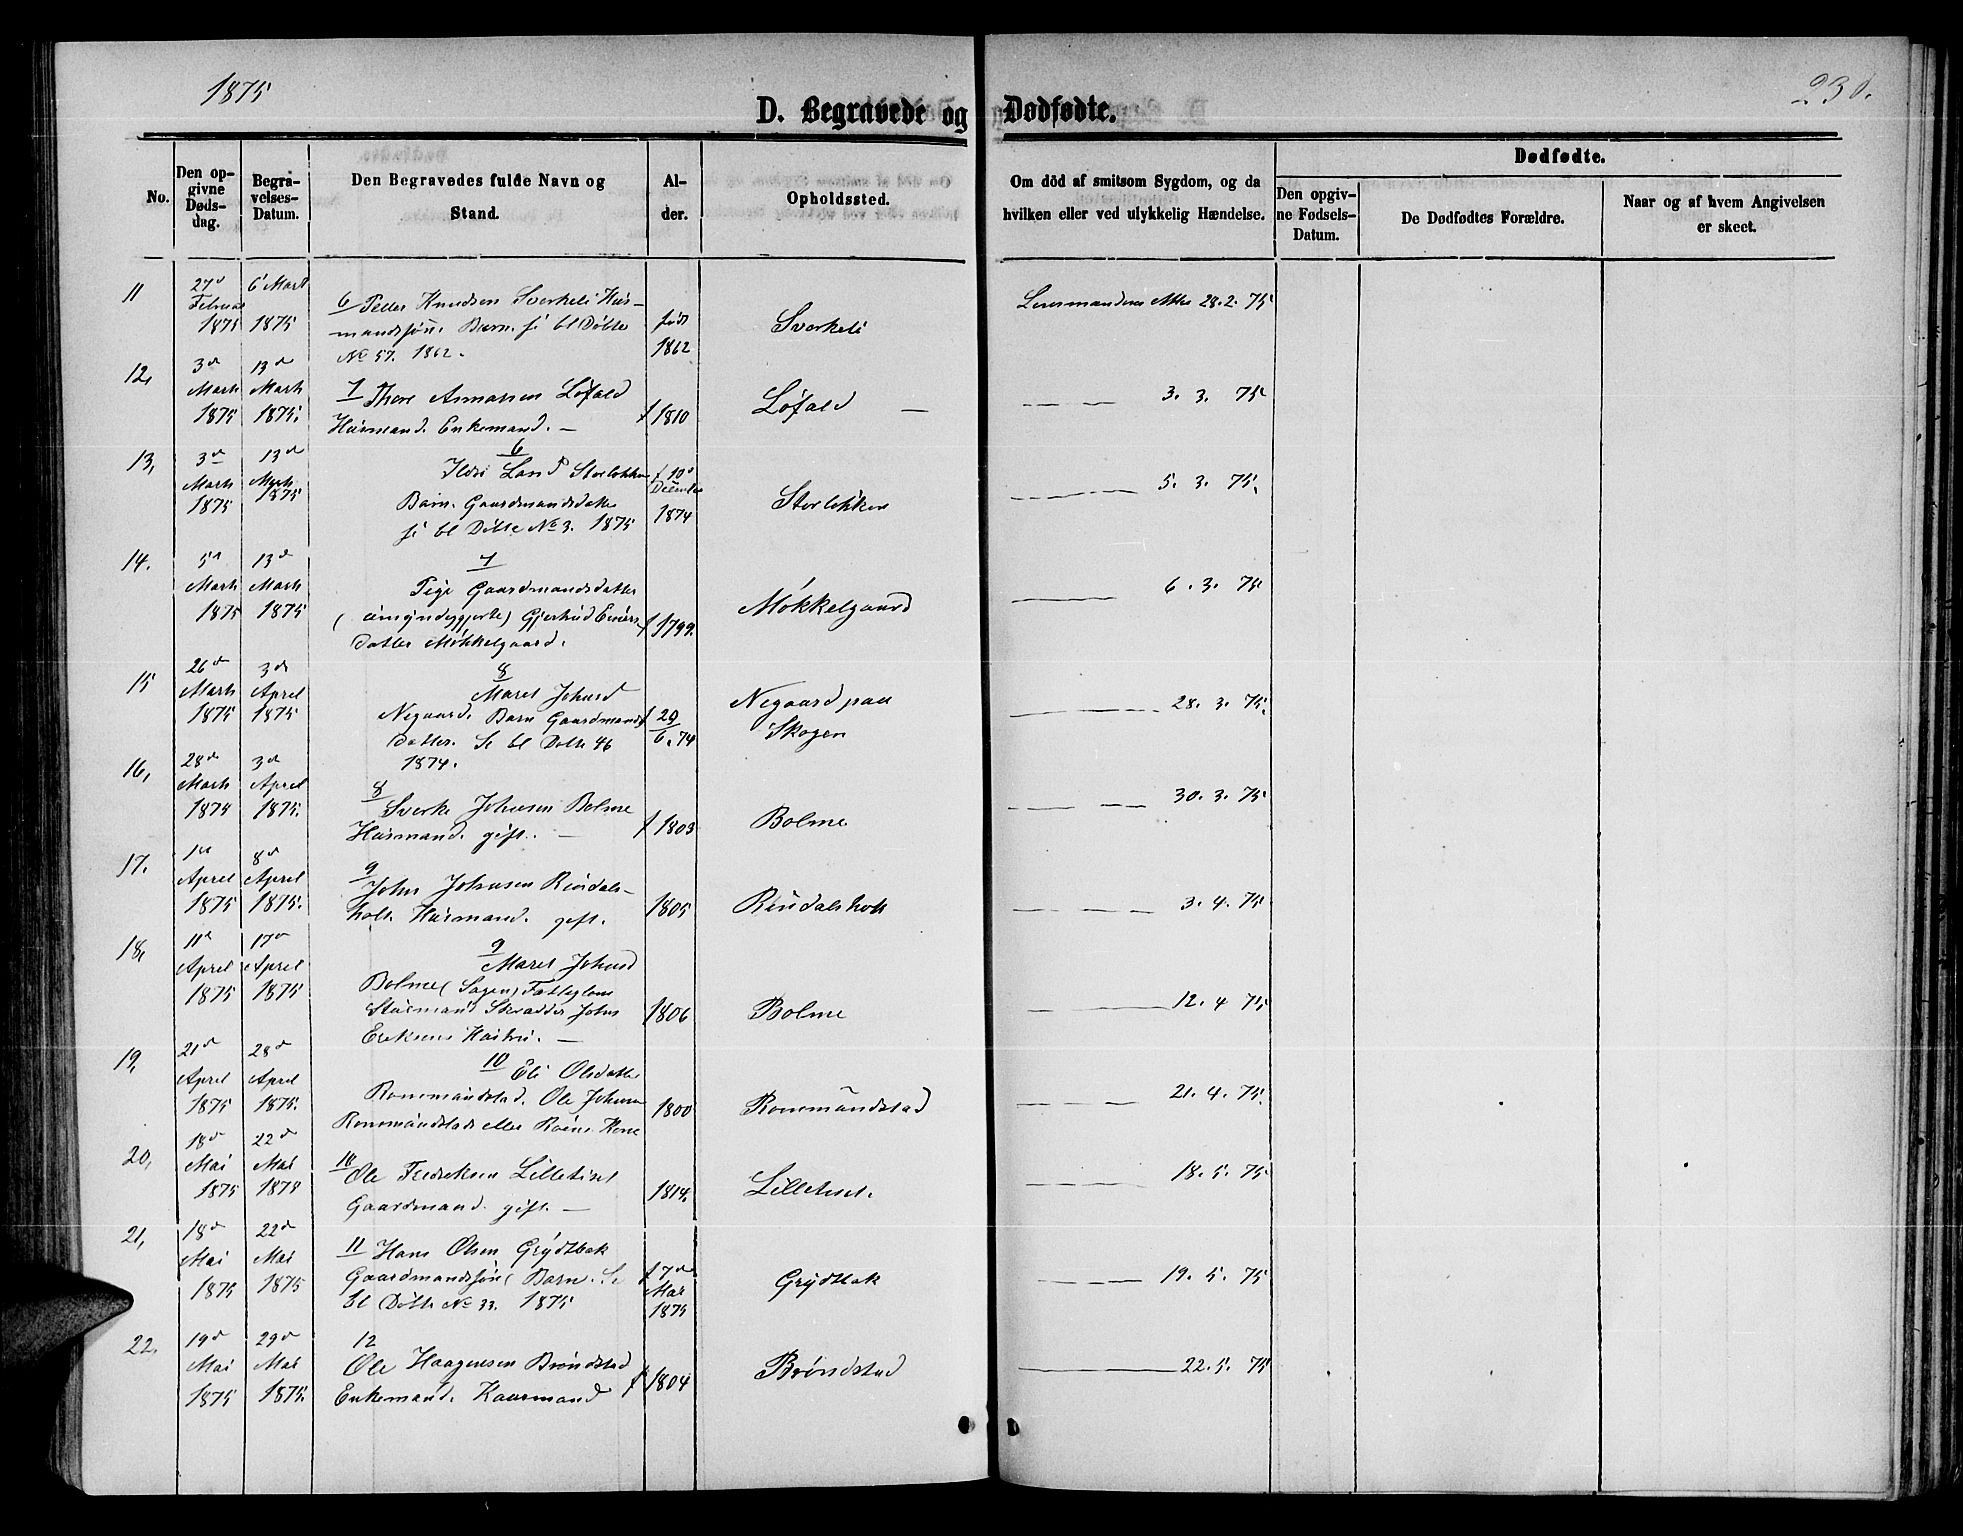 1875
230.
D. Begravede og Dødfødte.
No.
Den op-
givne
Døds-
dag.
Begra-
velses-
Datum.
Den Begravedes fulde Navn og
Stand.
Al-
der.
Opholdssted.
Om död af smitsom Sygdom, og da
hvilken eller ved ulykkelig Hændelse.
Dødfødte.
Den opgiv-
ne Fødsels-
Datum.
De Dødfødtes Forældre.
Naar og af hvem Angivelsen
er skeet.
11
27d
Februar
1875
6 Mart
1875
6 Peder Knudsen Sverkeli Hus-
mandssøn. Barn. se bl Døbte
No 57. 1862.
født
1862
Sverkeli
28.2.75
12,
3d
Marts
1875
13d
Marts
1875.
7 Thore Asmassen Løfald
Husmand. Enkemand. —
f 1810
Løfald —
— — — 3. 3. 75
13,
3d
Marts
1875
13d
Marts
1875
6
Storløkken
Barn. Gaardmandsdatter
se bl Døbte No 3. 1875
f 10d
December
1874
Storløkken
— — — 5. 3. 75.
14.
5d
Marts
1875
13d
Marts
1875
7
Pige Gaardmandsdatter
(umyndiggjorte) Gjertrud
datter Møkkelgaard.
f 1799.
Møkkelgaard
6. 3. 75
15
26d
Marts
1875
3d
April
1875
8
Maret Johnsd
Negaard. Barn Gaardmands
datter. Se bl Døbte 46
1874.
f 29
6.74
Negaard paa
Skogen
28. 3. 75.
16,
28d
Marts
1875
3d
April
1875.
8
Sverke Johnsen Bolme
Husmand. gift. —
f 1803
Bolme
30. 3. 75
17.
1st
April
1875
8d
April
1875.
9
John Johnsen Rindals-
holt. Husmand. gift.
1805
Rindalsholt
3. 4. 75
18,
11d
April
1875
17d
April
1875
9
Maret Johnsd
Bolme (Sagen) Fattiglem
Skrædder John
Eriksens Hustru. —
1806
Bolme
12. 4 75
19,
21d
April
1875
28d
April
1875.
10
Eli Olsdatter
Rommundstad. Ole Johnsen
Rommundstads eller Kone
1800
Rommundstad
21. 4. 75.
20,
18d
Mai
1875
22d
Mai
1875
10
Ole Fredriksen Lilletiset
Gaardmand. gift. —
1814.
Lilletiset.
18. 5. 75
21,
18d
Mai
1875
22d
Mai
1875
11 Hans Olsen Grydtbak
Gaardmandssøn (Barn. Se
bl Døbte No 33. 1875
f 7d
Mar
1875
Grydtbak
19. 5. 75
22.
19d
Mai
1875
29d
Mai
1875.
12
Ole Haagensen Brøndstad
Enkemand. Kaarmand
f 1804
Brøndstad
22. 5. 75